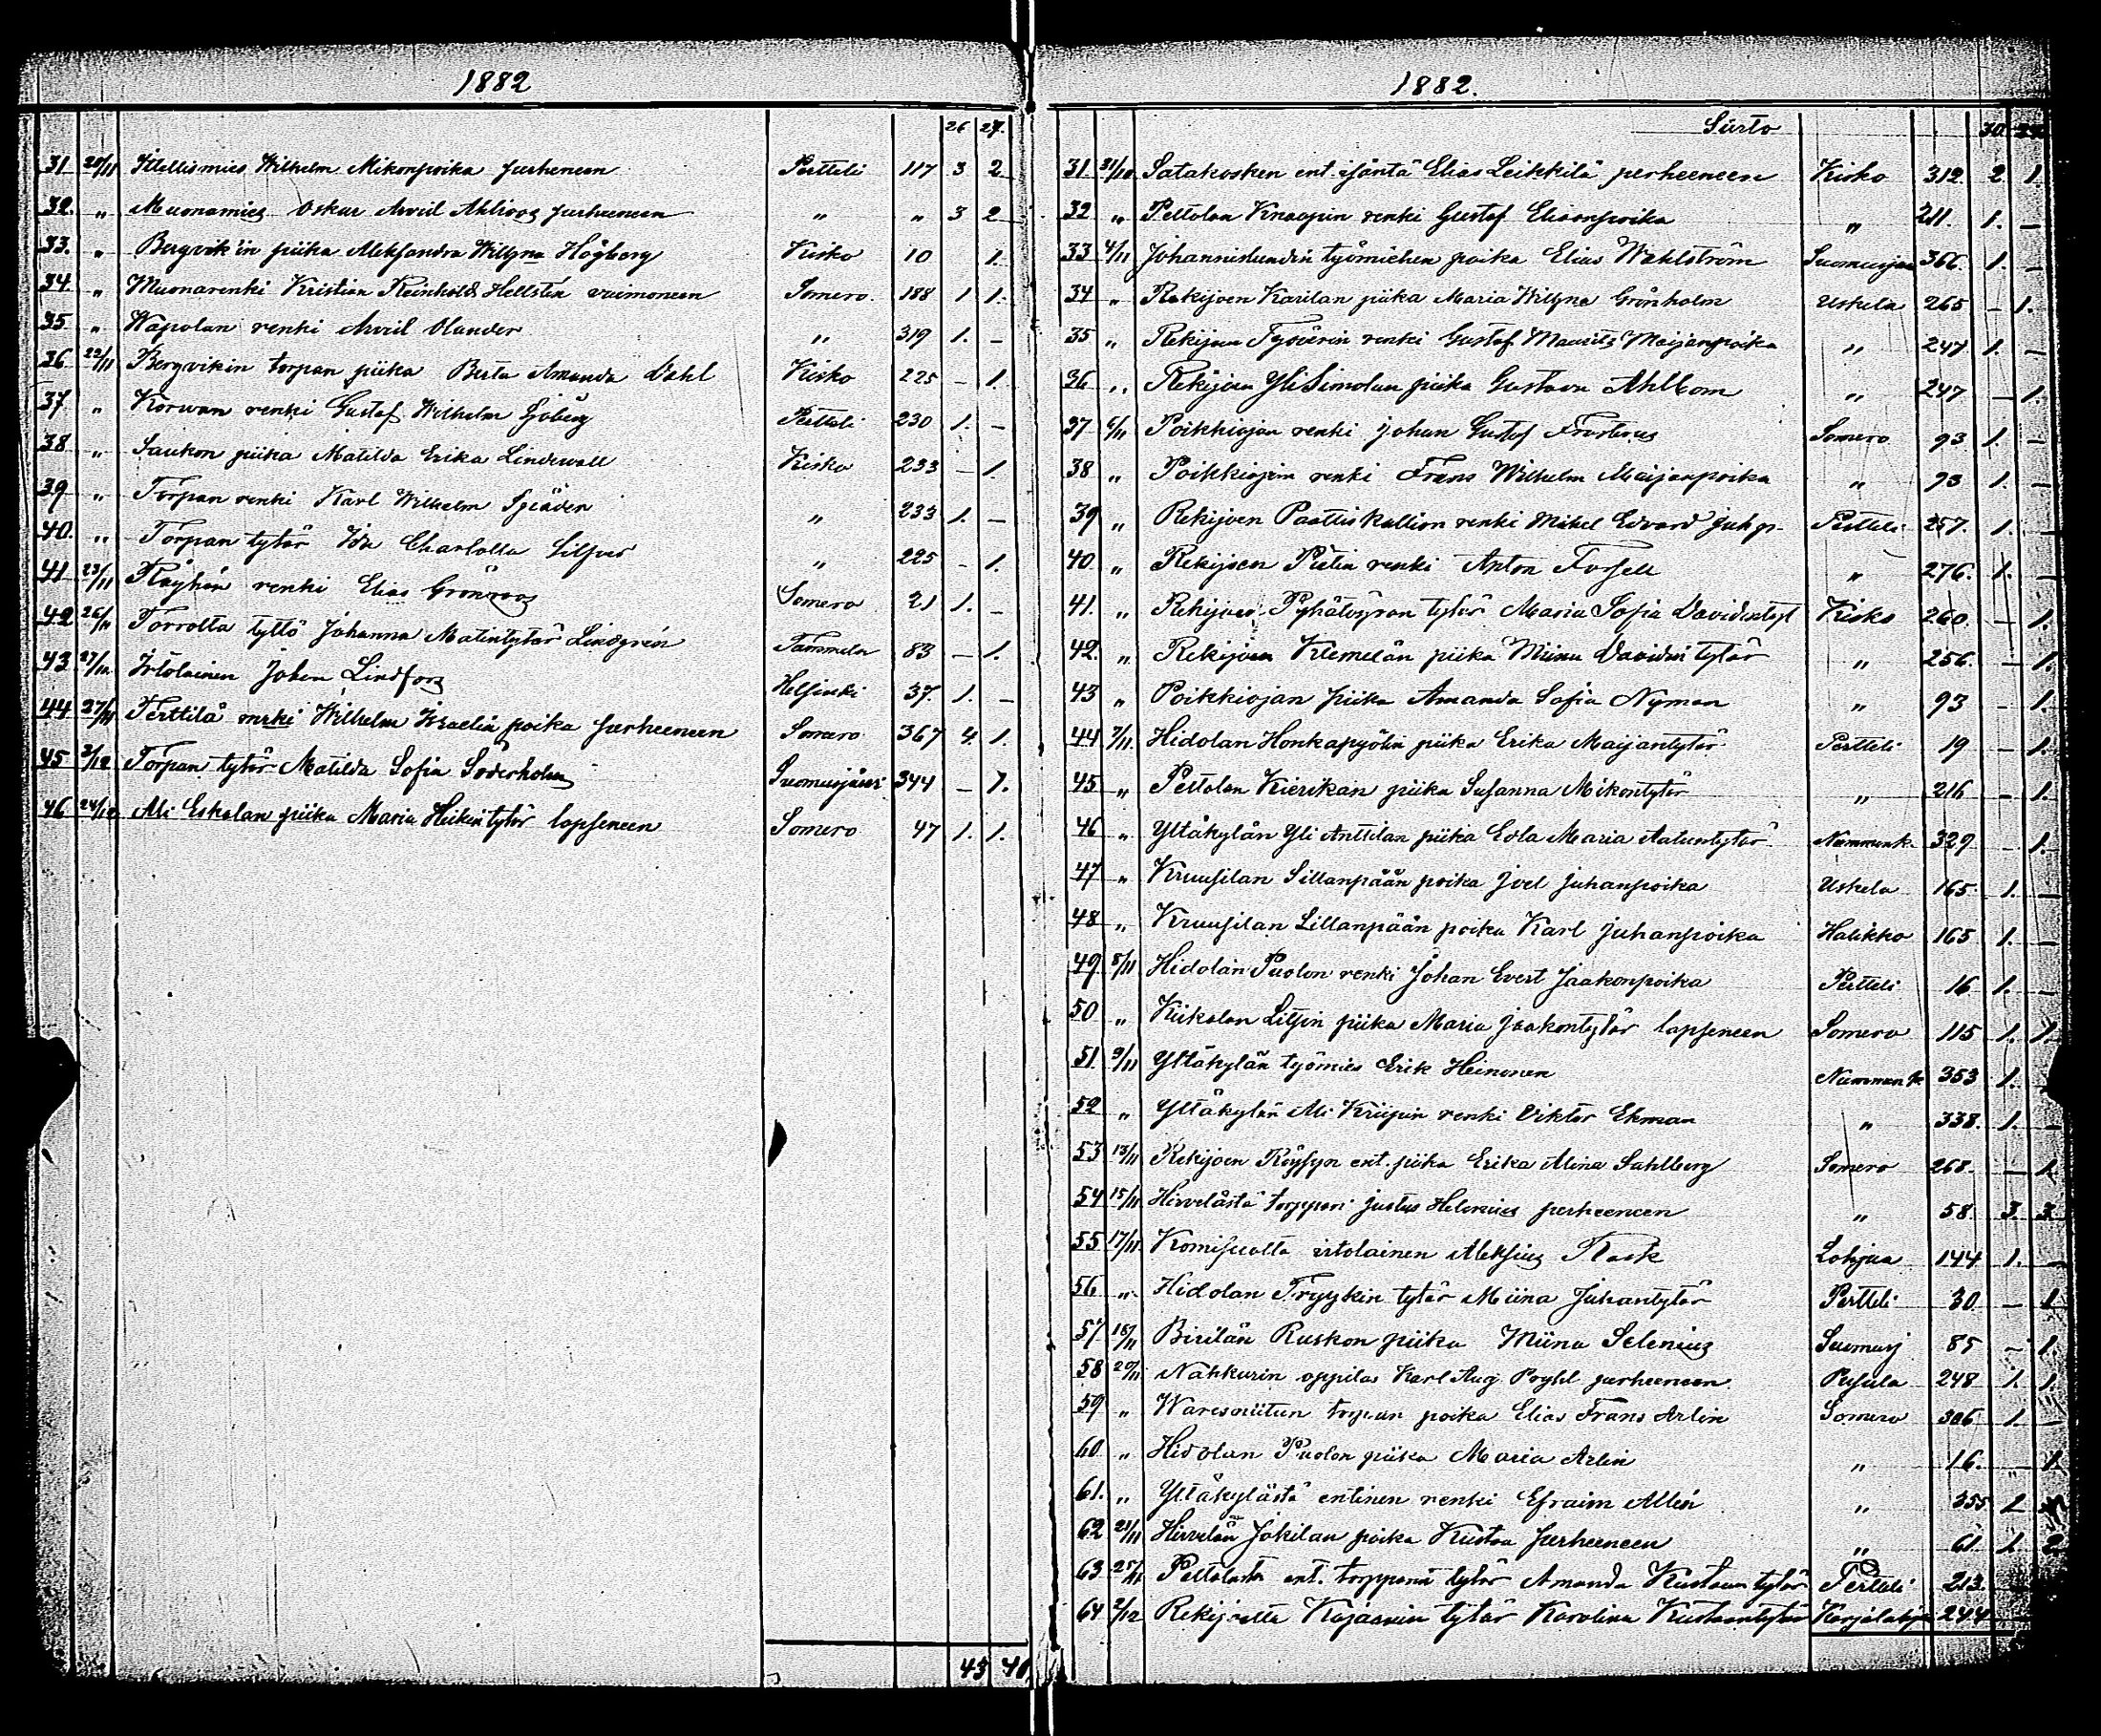 1882
26 27.
31 20/11 Itellismies Wilhelm Mikonpoika perheneen Pertteli 117 3 2
32. „ Muonamies Oskar Arvid Ahlroos perheeneen „ „ 3 2
33. „ Bergvik'in piika Aleksandra Wilhma Högberg Kisko 10 1.
34 „ Muonarenki Kristian Reinhold Hellstén vaimoneen Somero. 188 1 1.
35 „ Wapolan renki Arvid Olander „ 319 1. –
36 22/11 Bergvikin torpan piika Berta Amanda Dahl Kisko 225 – 1.
37 „ Korwan renki Gustaf Wilhelm Sjöberg Pertteli 230 1. –
38 „ Saukon piika Matilda Erika Lindewall Kisko 233 – 1.
39 „ Torpan renki Karl Wilhelm „ 233 1. –
40. „ Torpan tytär Ida Charlotta „ 225 – 1.
41 23/11 renki Elias Grönroos Somero 21 1. –
42 26/11 Torrolta tyttö Johanna Matintytär Lindgrén Tammela 83 – 1.
43 27/11. Irtolainen Johan Lindfors Helsinki 37. 1. –
44 27/11 Terttilä renki Wilhelm Israelin poika perheeneen Somero 367 4. 1.
45 2/12 Torpan tytär Matilda Sofia Söderholm Suomusjärvi 344 – 1.
46 24/12 Ali Eskolan piika Maria Heikintytär lapseneen Somero 47 1. 1.
43 40
1882.
Siirto 30
31 31/10 Satakosken ent. isäntä Elias Leikkilä perheeneen Kisko 312. 2. 1.
32 „ Pettolan Knaapin renki Gustaf Eliaanpoika „ 211. 1. –
33 4/11 Johannislundin työmiehen poika Elias Wahlström Suomusjärvi 366. 1. –
34 „ Rekijoen Karilan piika Maria Wilhma Grönholm Uskela 265 – 1.
35 „ Rekijoen renki Gustaf Maurits Maijanpoika „ 247 1. –
36 „ Rekijoen Yli Simolan piika Gustava Ahlbom „ 247 – 1.
37 6/11 Poikkiojan renki Johan Gustaf Frosterus Somero 93 1. –
38 „ Poikkiojan renki Frans Wilhelm Maijanpoika „ 93 1. –
39 „ Rekijoen Paattiskallion renki Mikel Edvard Juh.p. Pertteli 257. 1. –
40 „ Rekijoen Pietin renki Anton Forsell „ 276. 1. –
41. „ Rekijoen tytär Maria Sofia Davidintyt Kisko 260 – 1.
42. „ Rekijoen Klemelän piika Miina Davidin tytär „ 256. – 1.
43 „ Poikkiojan piika Amanda Sofia Nyman „ 93 – 1.
44 7/11. Hidolan Honkapyölin piika Erika Maijantytär Pertteli 19 – 1.
45 „ Pettolan Kierikan piika Susanna Mikontytär „ 216 – 1.
46 „ Yltäkylän Yli Anttilan piika Eva Maria Aatuntytär Nummenk. 329 – 1.
47 „ Kruusilan Sillanpään poika Joel Juhanpoika Uskela 165 1. –
48 „ Kruusilan Sillanpään poika Karl Juhanpoika Halikko 165 1. –
49 8/11 Hidolan Puolon renki Johan Evert Jaakonpoika Pertteli 16 1. –
50 „ Kiikalan piika Maria Jaakontytär lapseneen Somero 115 1. 1.
51. 9/11 Yltäkylän työmies Erik Heinonen Nummenk 353 1. –
52 „ Yltäkylän Ali Kriipin renki Viktor Ekman „ 338. 1. –
53 13/11 Rekijoen ent. piika Erika Alina Sahlberg Somero 268. – 1.
54 15/11 Hirvelästä torppari Justus Helenius perheeneen „ 58 3. 3.
55 17/11. Komisuolta irtolainen Aleksius Rask Lohjaa 144 1. –
56 „ Hidolan Tryykin tytär Miina Juhantytär Pertteli 30 – 1.
57 18/11 Pirilän Ruskon piika Miina Selenius Suomusj 85 – 1.
58 20/11 Nahkurin oppilas Karl Aug. perheeneen Pusula 248 1. 1.
59 „ torpan poika Elias Frans Arlin Somero 306 1. –
60 „ Hidolan Puolon piika Maria Arlin „ 16. – 1.
61. „ Yltäkylästä entinen renki Efraim Allén „ 355 1.
62 21/11 Hirvelän Jokilan poika Kustaa perheeneen „ 61 1. 2
63 25/11 Pettolasta ent. torpparin tytär Amanda Kustaan tytär Pertteli 213.
64 2/12 Rekijoelta Kajaanin tytär Karolina Kustaantytär Karjalohja 244